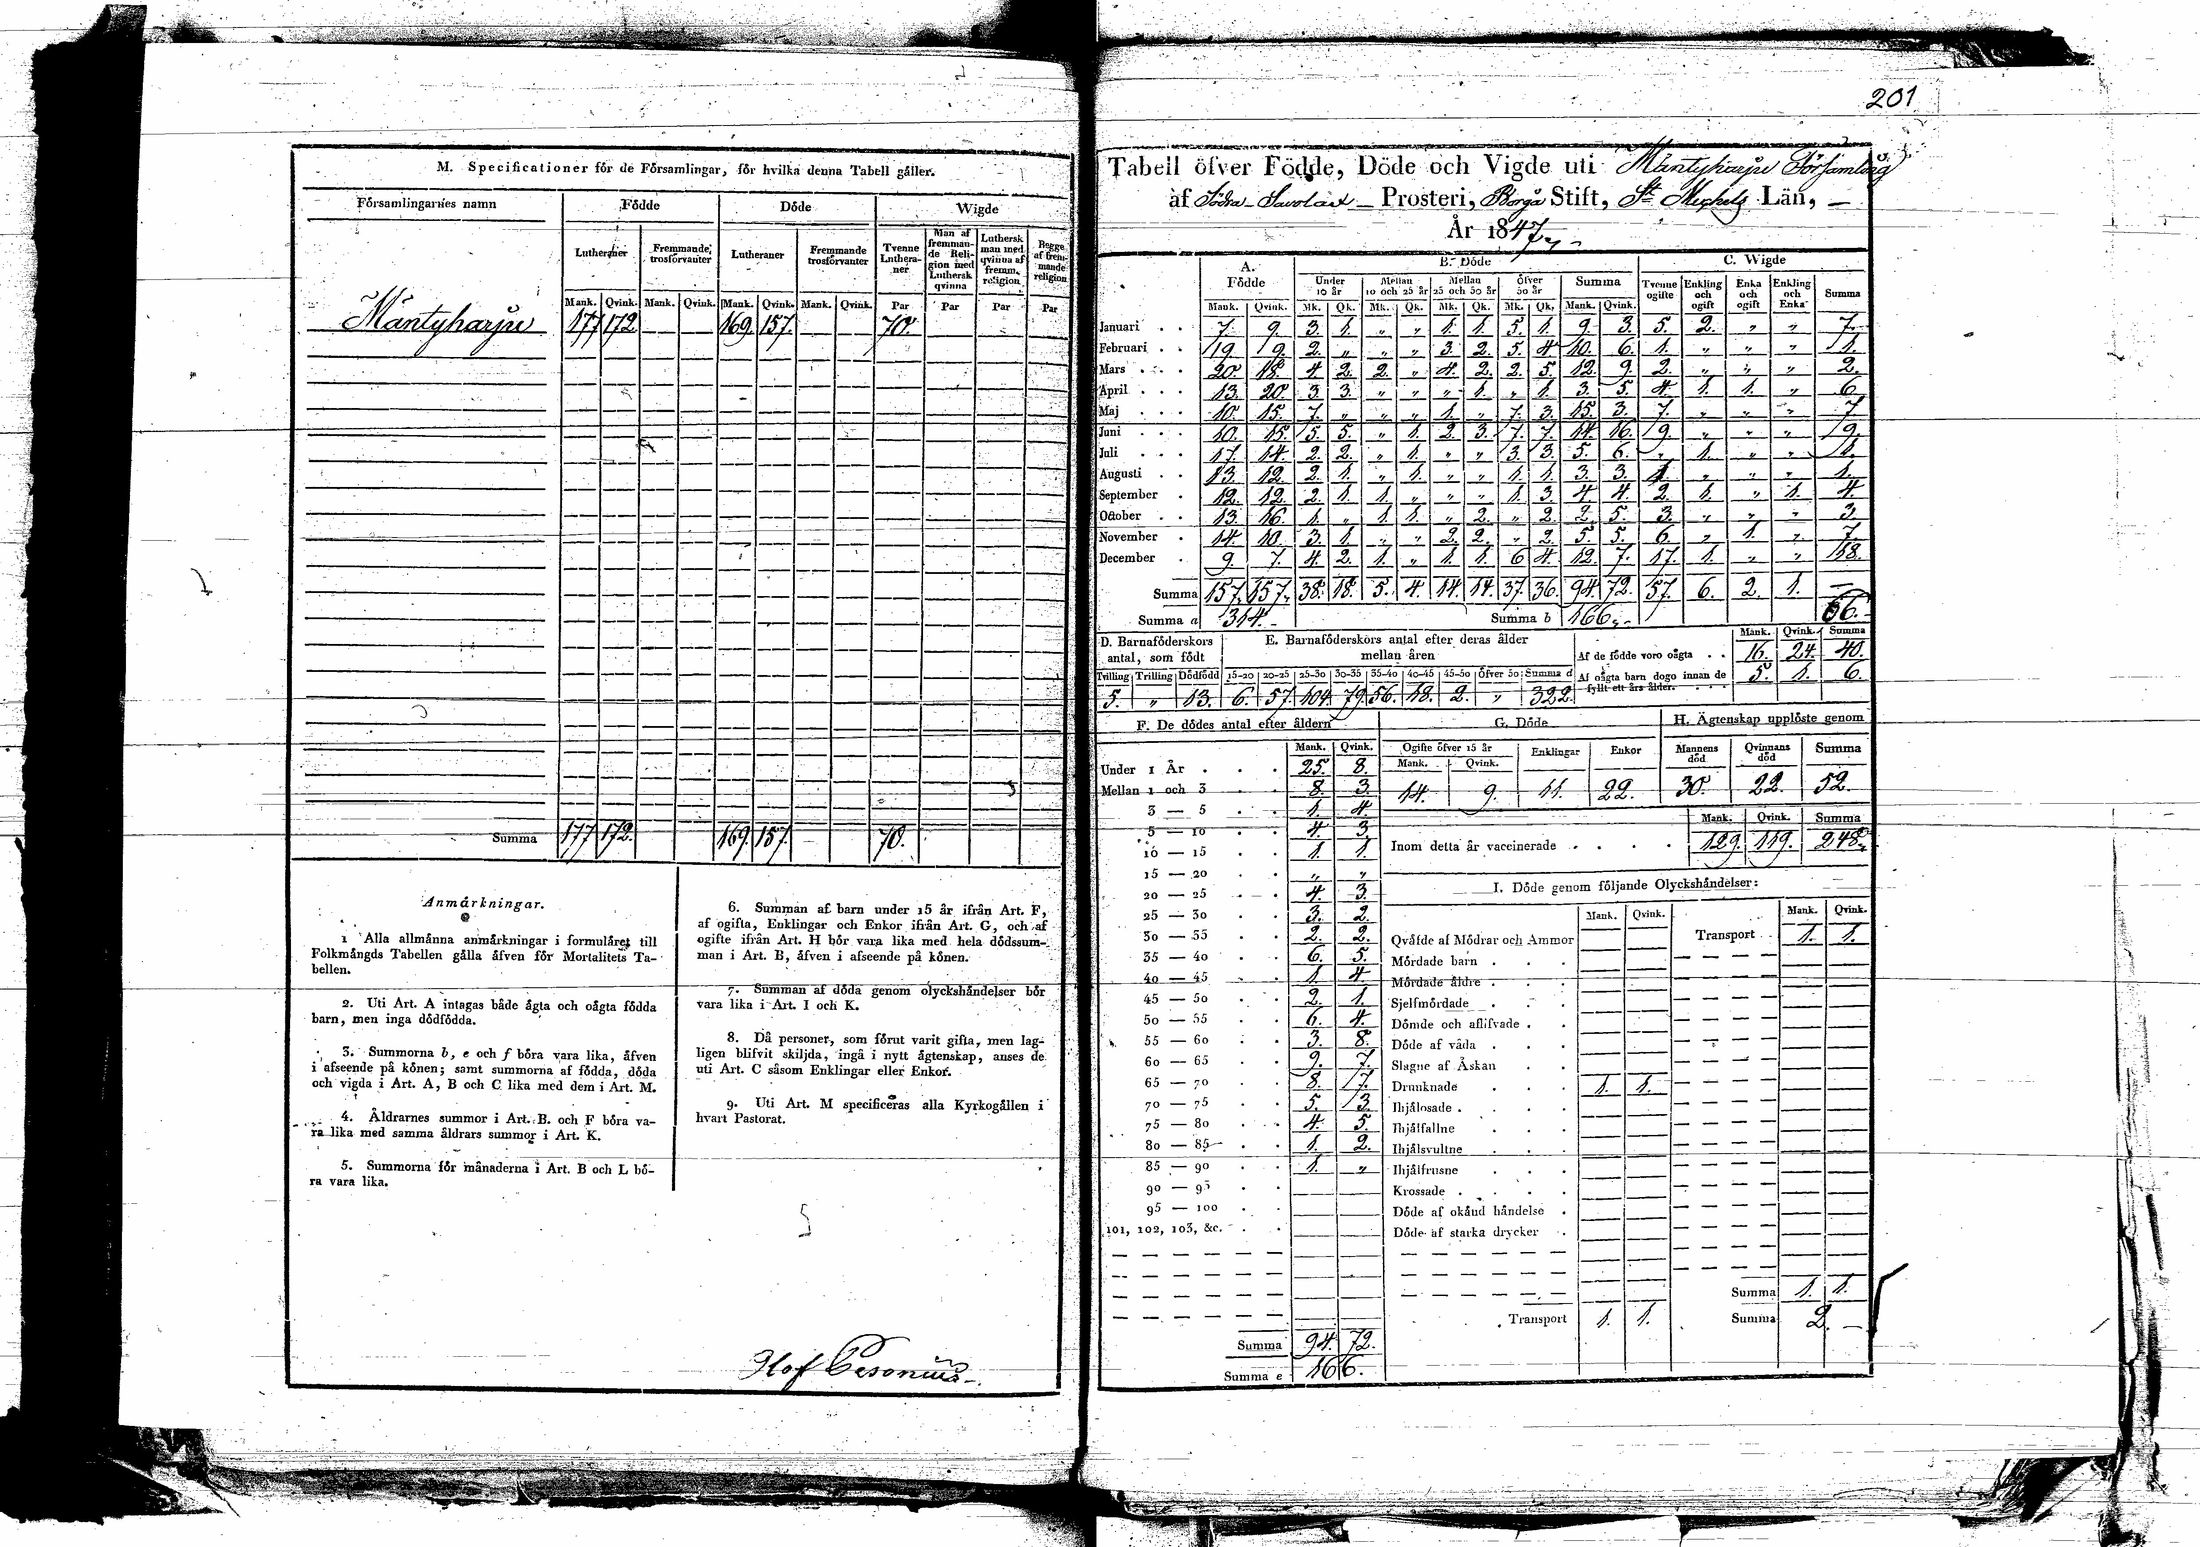 201
M. Specificationer för de Församlingar, för hvilka denna Tabell gäller.
Församlingarnes namn Födde Döde Wigde
Lutheraner Fremmande trosförvanter Lutheraner Fremmande trosförvanter Tvenne Lutheraner Man af fremmande Religion med Luthersk qvinna Luthersk man med qvinna af fremm. religion Begge af fremmande religion
Mank. Qvink. Mank. Qvink. Mank. Qvink. Mank. Qvink. Par Par Par Par
Mäntyharju 177 172. — — 169. 157. — — 70.
Summa 177 172. 169. 157. 70.
Anmärkningar.
1 Alla allmänna anmärkningar i formuläret till
Folkmängds Tabellen gälla äfven för Mortalitets Ta-
bellen.
2. Uti Art. A intagas både ägta och oägta födda
barn, men inga dödfödda.
3. Summorna b, e och f böra vara lika, äfven
i afseende på könen; samt summorna af födda, döda
och vigda i Art. A, B och C lika med dem i Art. M.
4. Åldrarnes summor i Art. B. och F böra va-
ra lika med samma åldrars summor i Art. K.
5. Summorna för månaderna i Art. B och L bö-
ra vara lika.
6. Summan af barn under 15 år ifrån Art. F,
af ogifta, Enklingar och Enkor ifrån Art. G, och af
ogifte ifrån Art. H bör vara lika med hela dödssum-
man i Art. B, äfven i afseende på könen.
7. Summan af döda genom olyckshändelser bör
vara lika i Art. I och K.
8. Då personer, som förut varit gifta, men lag-
ligen blifvit skiljda, ingå i nytt ägtenskap, anses de
uti Art. C såsom Enklingar eller Enkor.
9. Uti Art. M specificeras alla Kyrkogällen i
hvart Pastorat.
Olof Pesonius
Tabell öfver Födde, Döde och Vigde uti Mäntyharju Församling
af Södra Savolax Prosteri, Borgå Stift, St Michels Län,
År 1847
A. Födde B. Döde C. Wigde
Under 10 år Mellan 10 och 25 år Mellan 25 och 50 år Öfver 50 år Summa Tvenne ogifte Enkling och ogift Enka och ogift Enkling och Enka Summa
Mank. Qvink. Mk. Qk. Mk. Qk. Mk. Qk. Mk. Qk. Mank. Qvink.
Januari 7. 9. 3. 1. „ „ 1. 1. 5. 1. 9. 3. 5. 2. „ „ 7.
Februari 19 9. 2. „ „ „ 3. 2. 5. 4 10. 6. 1. „ „ „ 1.
Mars 20. 18. 4 2. 2. „ 4. 2. 2. 5. 12. 9. 2. „ „ „ 2.
April 13. 20. 3 3. „ „ „ 1. „ 1. 3. 5. 4. 1. 1. „ 6.
Maj 10. 15. 7. „ „ „ 1. „ 7. 3. 15. 3. 7. „ „ „ 7
Juni 10. 15. 5. 5. „ 1. 2. 3. 7. 7. 14. 16. 9. „ „ „ 9.
Juli 17. 14. 2. 2. „ 1. „ „ 3. 3. 5. 6. „ 1. „ „ 1.
Augusti 13. 12. 2. 1. „ 1. „ „ 1. 1. 3. 3. 1 „ „ „ 1.
September 12. 12. 2. 1. 1. „ „ „ 1. 3. 4. 4. 2. 1. „ 1. 4.
October 13. 16. 1. „ 1. 1. „ 2. „ 2. 2. 5. 3. „ „ „ 3.
November 14. 10. 3. 1. „ „ 2. 2. „ 2. 5. 5. 6. „ 1. „ 7.
December 9. 7. 4. 2. 1. „ 1. 1. 6 4. 12. 7. 17. 1. „ „ 18.
Summa 157. 157. 38. 18. 5. 4. 14. 14. 37. 36. 94. 72. 57. 6. 2. 1. —
Summa a 314. Summa b 166. 66.
D. Barnaföderskors antal, som födt E. Barnaföderskors antal efter deras ålder mellan åren Mank. Qvink. Summa
Af de födde voro oägta 16. 24. 40.
Af oägta barn dogo innan de fyllt ett års ålder. 5. 1. 6.
Trilling Trilling Dödfödd 15-20 20-25 25-30 30-35 35-40 40-45 45-50 Öfver 50 Summa d
5. „ 13. 6. 57. 104. 79. 56. 18. 2. „ 322.
F. De dödes antal efter åldern G. Döde H. Ägtenskap upplöste genom
Mank. Qvink. Ogifte öfver 15 år Enklingar Enkor Mannens död Qvinnans död Summa
Mank. Qvink.
14. 9. 11. 22. 30. 22. 52.
Under 1 År 25. 8.
Mellan 1 och 3 8. 3.
3 — 5 1. 4.
5 — 10 4. 3.
10 — 15 1. 1.
15 — 20 „ „
20 — 25 4. 3.
25 — 30 3. 2.
30 — 35 2. 2.
35 — 40 6. 5.
40 — 45 1 4
45 — 50 2. 1.
50 — 55 6. 4.
55 — 60 3. 8.
60 — 65 9. 7.
65 — 70 8. 7.
70 — 75 5. 3.
75 — 80 4. 5.
80 — 85 1. 2.
85 — 90 1. „
90 — 95
95 — 100
101, 102, 103, &c.
Summa 94. 72.
Summa e 166.
Mank. Qvink. Summa
Inom detta år vaccinerade 129. 119. 248.
I. Döde genom följande Olyckshändelser:
Mank. Qvink. Mank. Qvink.
Qväfde af Mödrar och Ammor Transport 1. 1.
Mördade barn
Mördade äldre
Sjelfmördade
Dömde och aflifvade
Döde af våda
Slagne af Åskan
Drunknade 1. 1.
Ihjälosade
Ihjälfallne
Ihjälsvultne
Ihjälfrusne
Krossade
Döde af okänd händelse
Döde af starka drycker
Summa 1. 1.
Transport 1. 1. Summa 2.